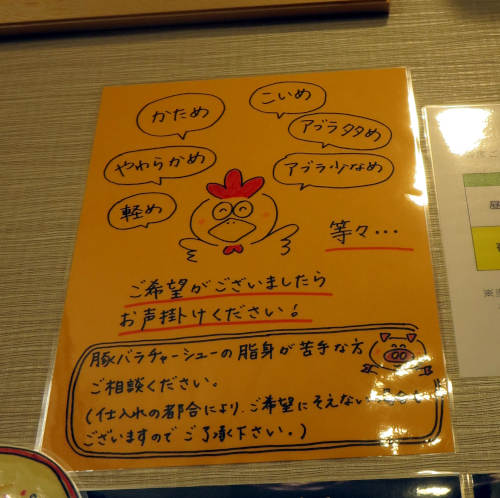 かため
こいめ
アブラ多め
やわらかめ
アブラ少なめ
軽め
等々・・・
ご希望がございましたら
お声掛けください!
豚バラチャーシューの脂身が苦手な方
ご相談ください。
(仕入れの都合により、ご希望にそえない
ございますのでご了承下さい。)